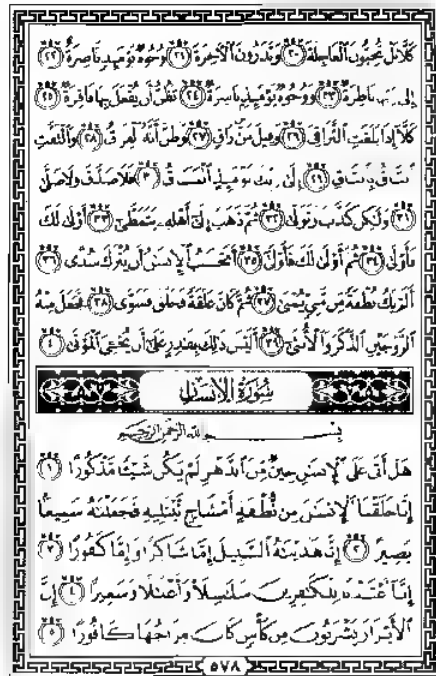 كَلَّا بَلْ تُحِبُّونَ الْعَاجِلَةَ ٢٠ وَتَذَرُونَ الْآخِرَةَ ٢١ وُجُوهٌ يَوْمَئِذٍ نَاضِرَةٌ ٢٢
إِلَى رَبِّهَا نَاظِرَةٌ ٢٣ وَوُجُوهٌ يَوْمَئِذٍ بَاسِرَةٌ ٢٤ تَظُنُّ أَنْ يُفْعَلَ بِهَا فَاقِرَةٌ ٢٥
كَلَّا إِذَا بَلَغَتِ التَّرَاقِيَ ٢٦ وَقِيلَ مَنْ رَاقٍ ٢٧ وَظَنَّ أَنَّهُ الْفِرَاقُ ٢٨ وَالْتَفَّتِ
السَّاقُ بِالسَّاقِ ٢٩ إِلَى رَبِّكَ يَوْمَئِذٍ الْمَسَاقُ ٣٠ فَلَا صَدَّقَ وَلَا صَلَّى
٣١ وَلَكِنْ كَذَّبَ وَتَوَلَّى ٣٢ ثُمَّ ذَهَبَ إِلَى أَهْلِهِ يَتَمَطَّى ٣٣ أَوْلَى لَكَ
فَأَوْلَى ٣٤ ثُمَّ أَوْلَى لَكَ فَأَوْلَى ٣٥ أَيَحْسَبُ الْإِنْسَنُ أَنْ يُتْرَكَ سُدًى ٣٦
أَلَمْ يَكُ نُطْفَةً مِنْ مَنِيٍّ يُمْنَى ٣٧ ثُمَّ كَانَ عَلَقَةً فَخَلَقَ فَسَوَّى ٣٨ فَجَعَلَ مِنْهُ
الزَّوْجَيْنِ الذَّكَرَ وَالْأُنْثَى ٣٩ أَلَيْسَ ذَلِكَ بِقَدِرٍ عَلَى أَنْ يُحْيِيَ الْمَوْتَى ٤٠
سُورَةُ الْإِنْسَانِ
بِسْمِ اللَّهِ الرَّحْمَنِ الرَّحِيمِ
هَلْ أَتَى عَلَى الْإِنْسَنِ حِينٌ مِنَ الدَّهْرِ لَمْ يَكُنْ شَيْئًا مَذْكُورًا ١
إِنَّا خَلَقْنَا الْإِنْسَنَ مِنْ نُطْفَةٍ أَمْشَاجٍ نَبْتَلِيهِ فَجَعَلْنَهُ سَمِيعًا
بَصِيرًا ٢ إِنَّا هَدَيْنَهُ السَّبِيلَ إِمَّا شَاكِرًا وَإِمَّا كَفُورًا ٣
إِنَّا أَعْتَدْنَا لِلْكَفِرِينَ سَلَسِلَا وَأَغْلَلًا وَسَعِيرًا ٤ إِنَّ
الْأَبْرَارَ يَشْرَبُونَ مِنْ كَأْسٍ كَانَ مِزَاجُهَا كَافُورًا ٥
٥٧٨